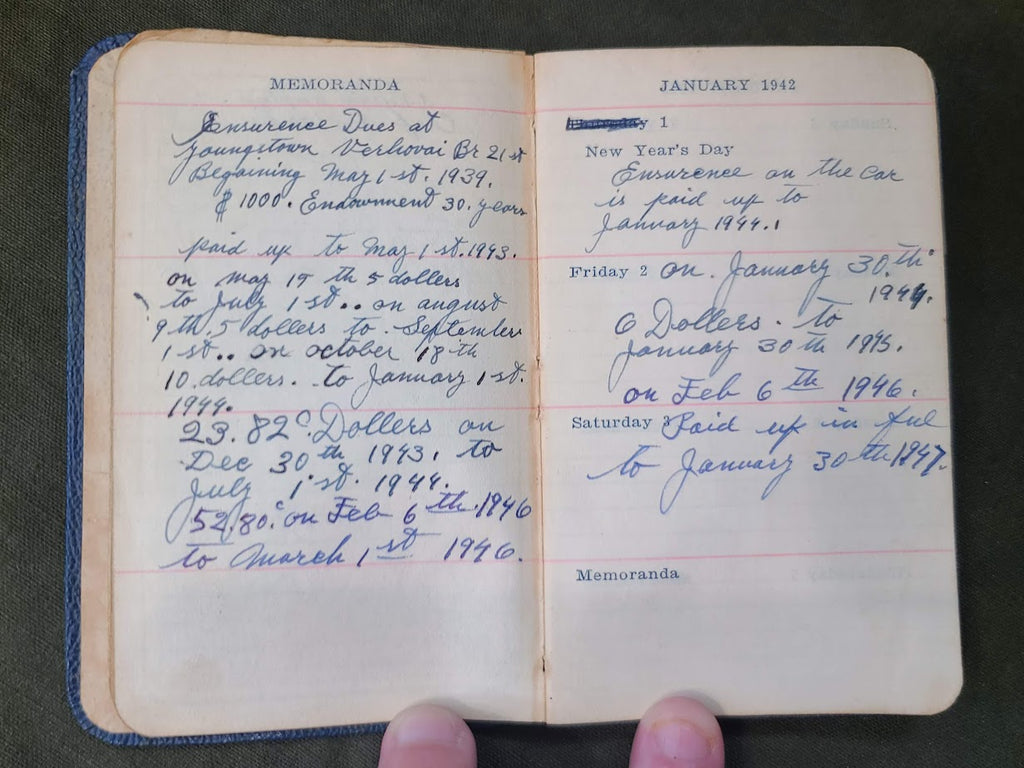 MEMORANDA
Ensurence Dues at
Youngstown Verhovai Br 21st
Begaining May 1st. 1939.
$1000. Enownment 30. years
paid up to May 1st. 1943.
on may 19th 5 dollars
to July 1st.. on august
9th. 5 dollars to September
1st.. on october 18th
10.dollars. to January 1st.
1944.
23.82c Dollars on
Dec 30th 1943. to
July 1st. 1944.
52.80c on Feb 6th 1946
to march 1st 1946.
JANUARY 1942
1
New Year's Day
Ensurence on the car
is paid up to
January 1944.
Friday 2 on January 30.th
1944.
6 Dollars. to
January 30th 1945.
on Feb 6th 1946.
Saturday 3 Paid up in ful
to January 30th 1947.
Memoranda